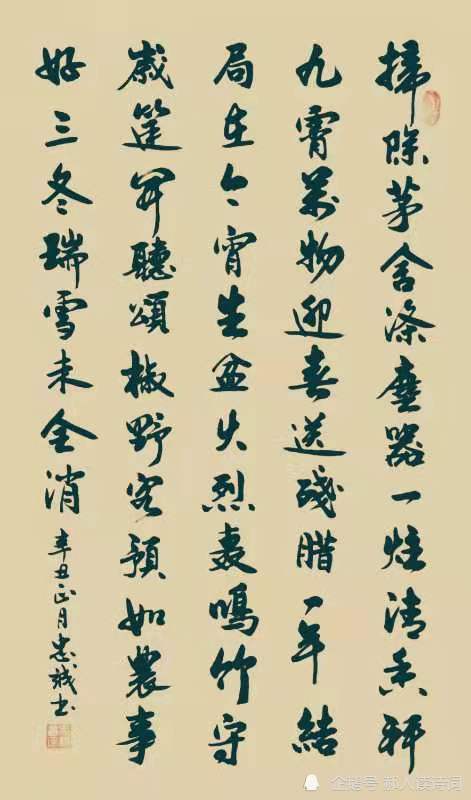 掃除茅舍滌塵器一炷清香拜
九霄萬物迎春送殘腊一年結
局在今宵生盆火烈轟鳴竹守
歲筵開聽頌椒野客預如農事
好三冬瑞雪未全消
辛丑正月忠誠书
企鹅号 郝人读诗词